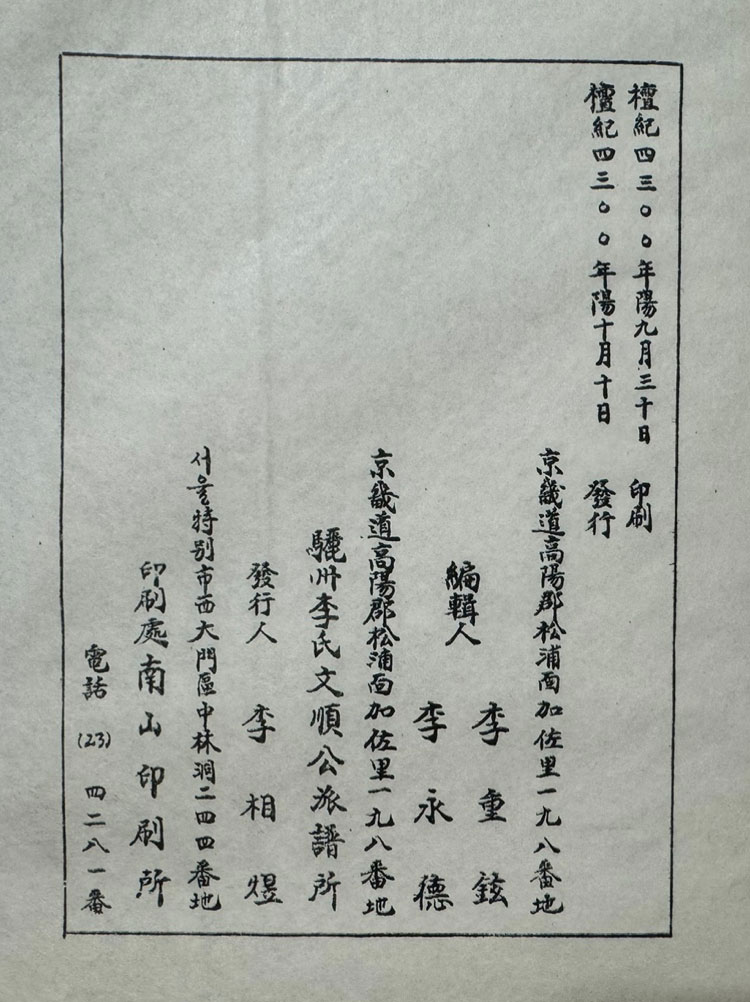 檀紀四三〇〇年陽九月三十日 印刷
檀紀四三〇〇年陽十月十日 發行
京畿道高陽郡松浦面加佐里一九八番地
李重鉉
編輯人
李永德
京畿道高陽郡松浦面加佐里一九八番地
驪州李氏文順公派譜所
發行人 李相煜
서울特別市西大門區中林洞二四四番地
印刷處南山印刷所
電話 (23) 四二八一番